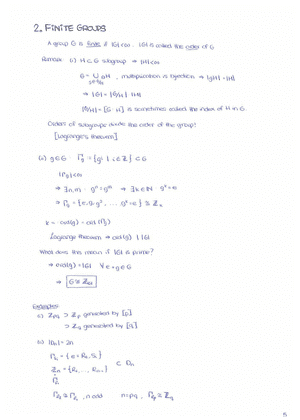 2. FINITE GROUPS
A group G is finite if |G| < ∞. |G| is called the order of G
Remark: (i) H ⊂ G subgroup ⇒ |H| < ∞
G = ∪ gH, multiplication is bijection ⇒ |gH| = |H|
⇒ |G| = |G/H| · |H|
|G/H| = [G : H] is sometimes called the index of H in G.
Orders of subgroups divide the order of the group!
[Lagrange's theorem]
(ii) g ∈ G Γg = {gⁱ | i ∈ Z} ⊂ G
|Γg| < ∞
⇒ ∃ n, m : gⁿ = gᵐ ⇒ ∃ k ∈ N gᵏ = e
⇒ Γg = {e, g, g², ... gᵏ = e} ≅ Zk
k = ord(g) = ord(Γg)
Lagrange theorem ⇒ ord(g) | |G|
What does this mean if |G| is prime?
⇒ ord(g) = |G| ∀ e ≠ g ∈ G
⇒ G ≅ Z|G|
Examples:
(i) Zpq ⊃ Zp generated by [q]
⊃ Zq generated by [p]
(ii) |Dn| = 2n
= {e = R₀, S₀}
Zn = {R₀, ..., Rn-1}
⊂ Dn
, n odd n = pq,
5